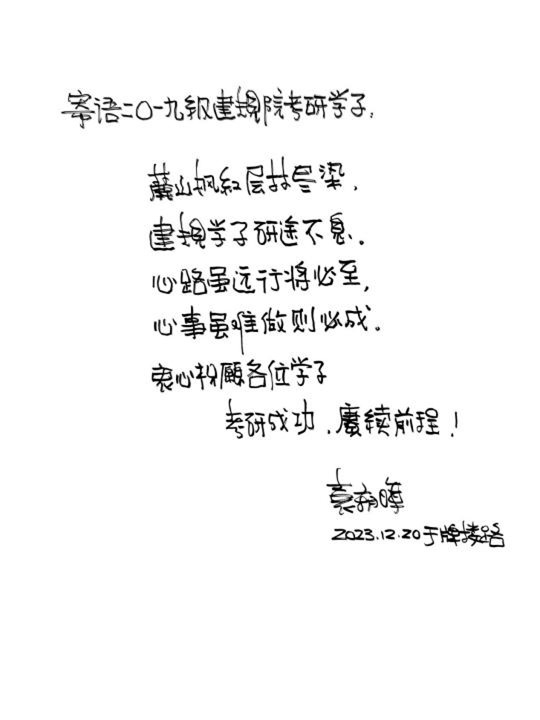 寄语二〇一九级建规院考研学子,
麓山枫红层林尽染,
建规学子研途不息。
心路虽远行将必至,
心事虽难做则必成。
衷心祝愿各位学子
考研成功,赓续前程!
袁朝晖
2023.12.20于牌楼路